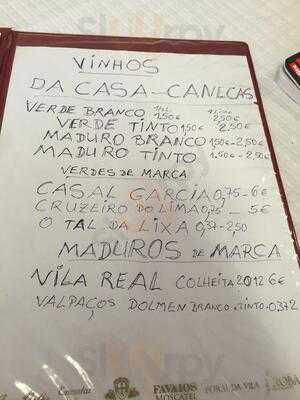 VINHOS
DA CASA-CANECAS
VERDE BRANCO 1,50€ 2,50€
VERDE TINTO 1,50€ 2,50€
MADURO BRANCO 1,50€-2,50€
MADURO TINTO 1.50€-2,50€
VERDES DE MARCA
CASAL GARCIA 0,75-6€
CRUZEIRO DO LIMA 0,75-5€
O TAL DA LIXA 0,37-2,50
MADUROS DE MARCA
VILA REAL COLHEITA 2012 6€
VALPAÇOS DOLMEN BRANCO E TINTO-0372
FAVAIOS
MOSCATEL
FORAL DA VILA